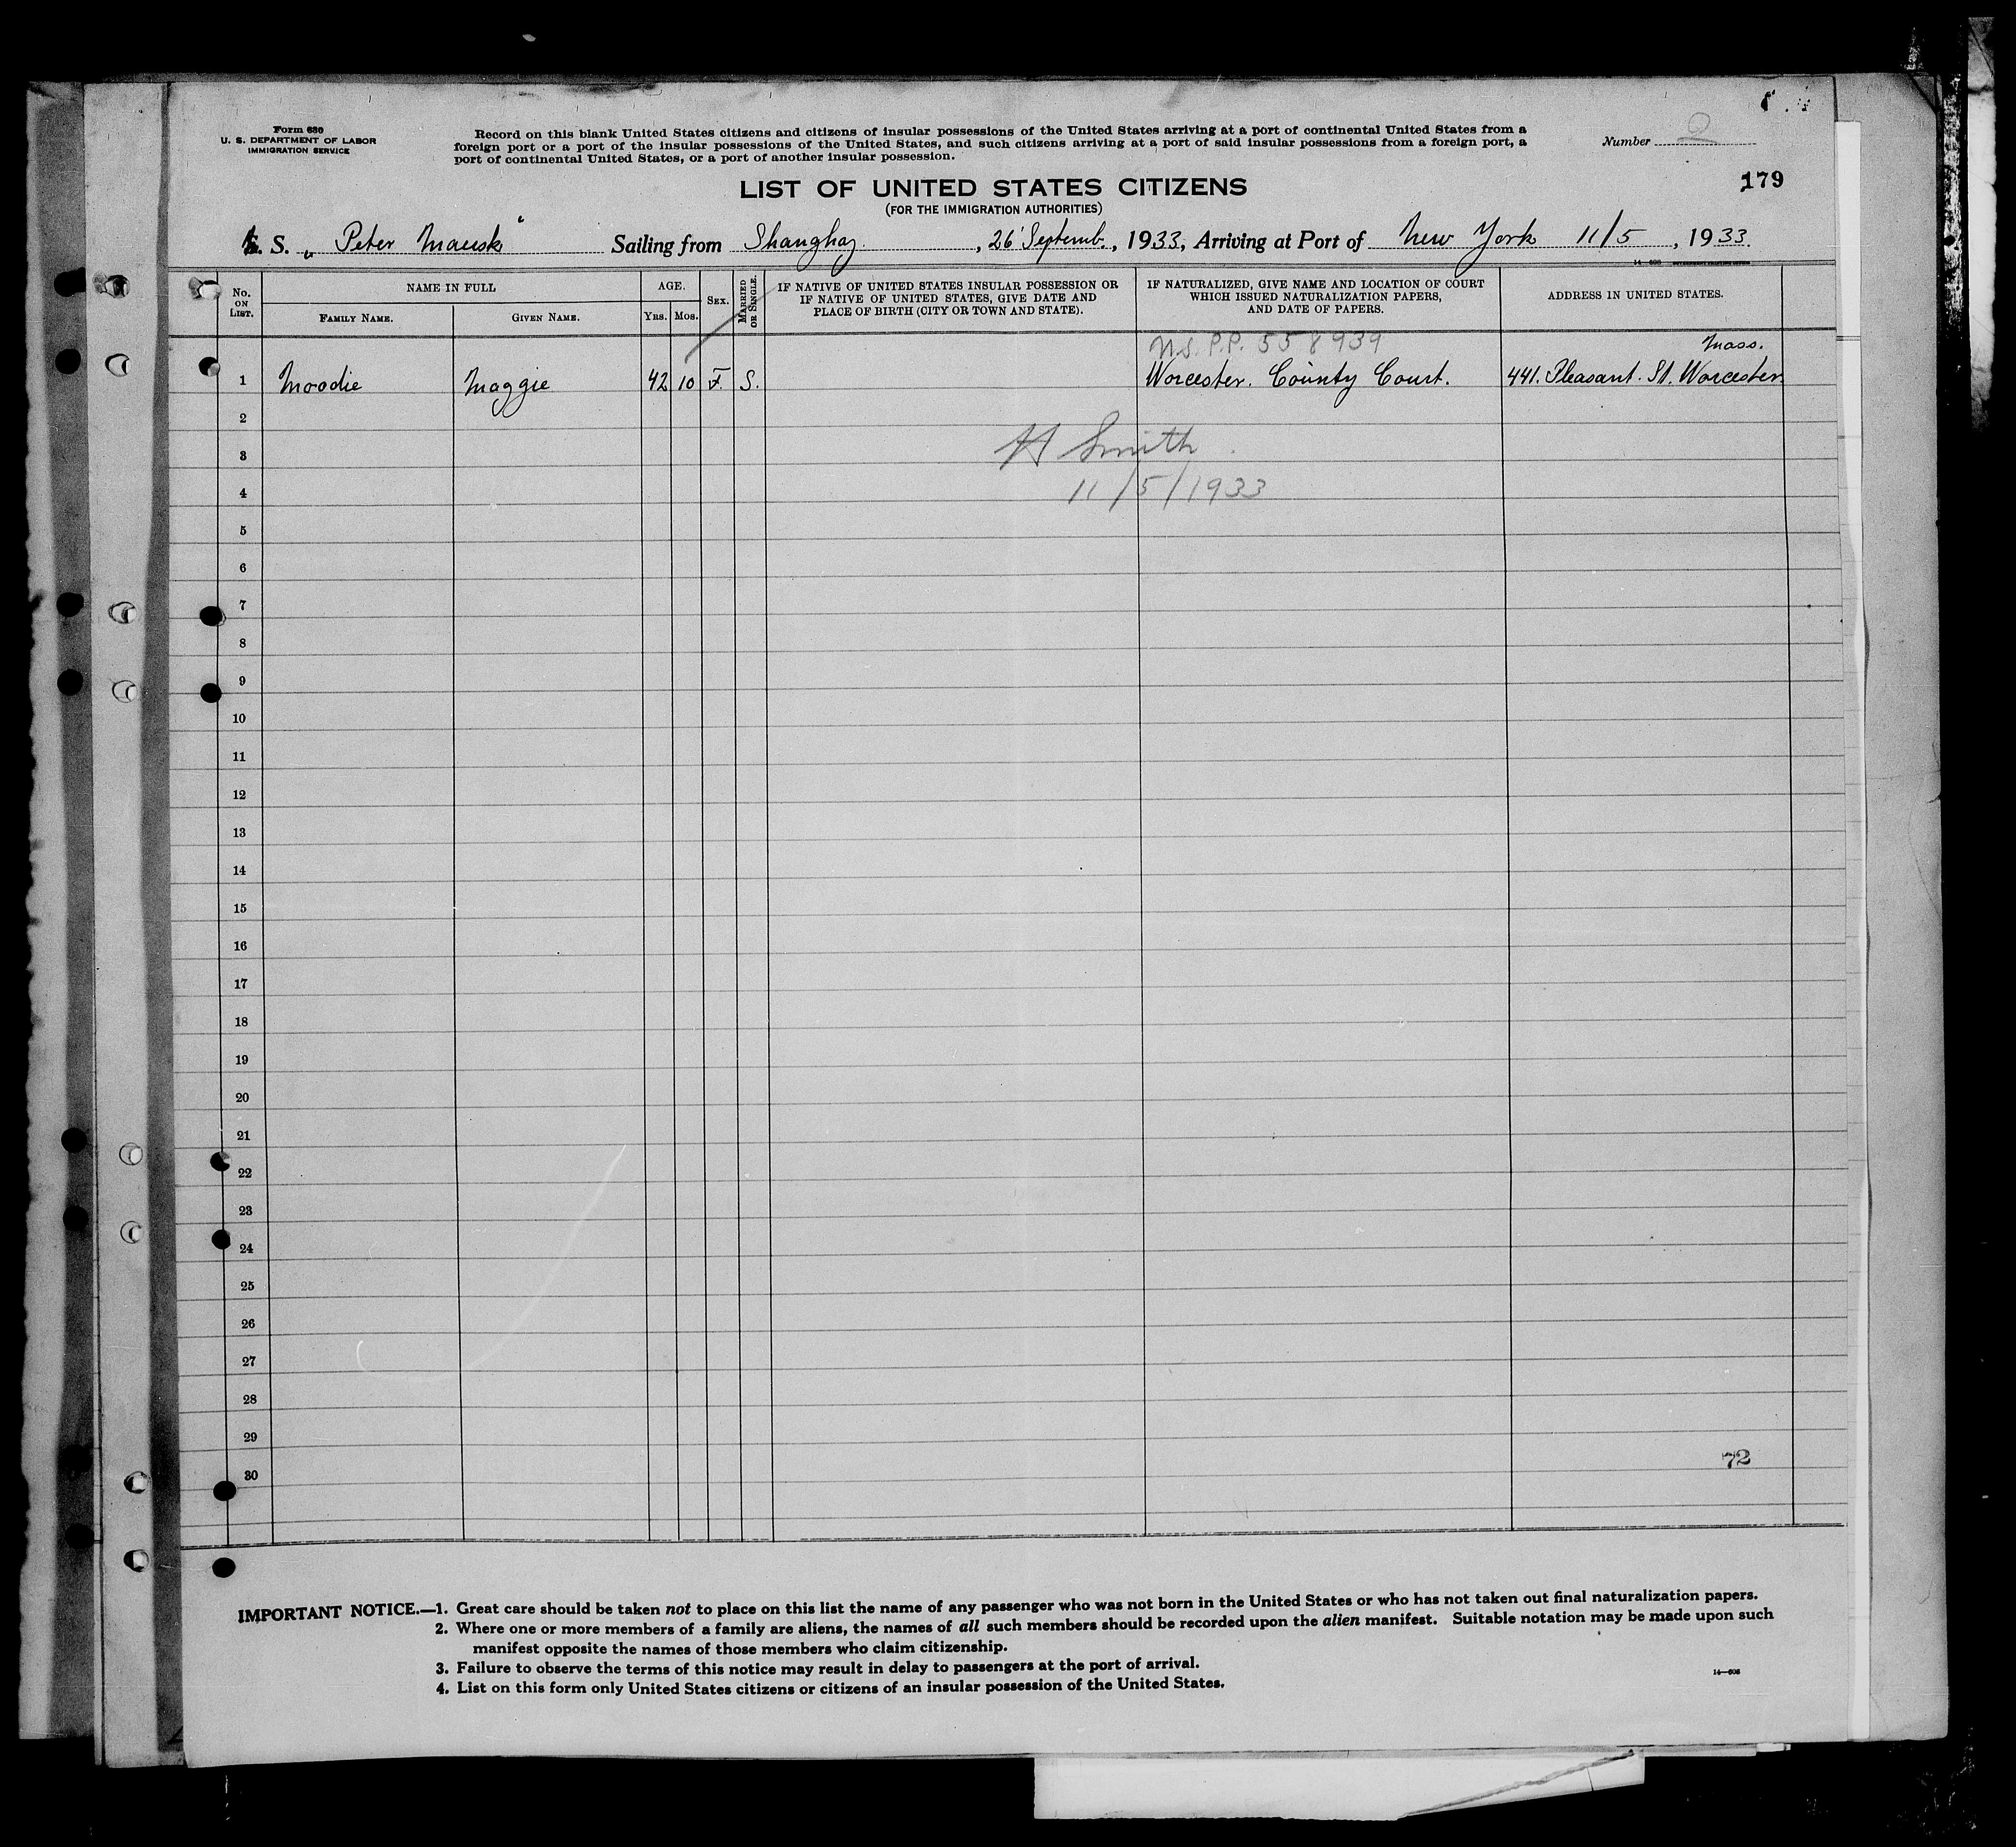 Form 630
U. S. DEPARTMENT OF LABOR
IMMIGRATION SERVICE
Record on this blank United States citizens and citizens of insular possessions of the United States arriving at a port of continental United States from a
foreign port or a port of the insular possessions of the United States, and such citizens arriving at a port of said insular possessions from a foreign port, a
port of continental United States, or a port of another insular possession.
Number 2
179
LIST OF UNITED STATES CITIZENS
(FOR THE IMMIGRATION AUTHORITIES)
S. „ Peter Maersk " Sailing from Shanghay. , 26 Septemb. , 1933, Arriving at Port of New York 11/5 , 1933.
No. ON LIST.
NAME IN FULL
FAMILY NAME.
GIVEN NAME.
AGE.
YRS. MOS.
SEX.
MARRIED OR SINGLE.
IF NATIVE OF UNITED STATES INSULAR POSSESSION OR
IF NATIVE OF UNITED STATES, GIVE DATE AND
PLACE OF BIRTH (CITY OR TOWN AND STATE).
IF NATURALIZED, GIVE NAME AND LOCATION OF COURT
WHICH ISSUED NATURALIZATION PAPERS,
AND DATE OF PAPERS.
ADDRESS IN UNITED STATES.
U.S. P.P. 558939
Mass.
1 Moodie Maggie 42 10 F. S. Worcester. County Court. 441. Pleasant. St. Worcester
2
H Smith
3
4 11/5/1933
5
6
7
8
9
10
11
12
13
14
15
16
17
18
19
20
21
22
23
24
25
26
27
28
29
72
30
IMPORTANT NOTICE.—1. Great care should be taken not to place on this list the name of any passenger who was not born in the United States or who has not taken out final naturalization papers.
2. Where one or more members of a family are aliens, the names of all such members should be recorded upon the alien manifest. Suitable notation may be made upon such
manifest opposite the names of those members who claim citizenship.
3. Failure to observe the terms of this notice may result in delay to passengers at the port of arrival.
4. List on this form only United States citizens or citizens of an insular possession of the United States.
14—608